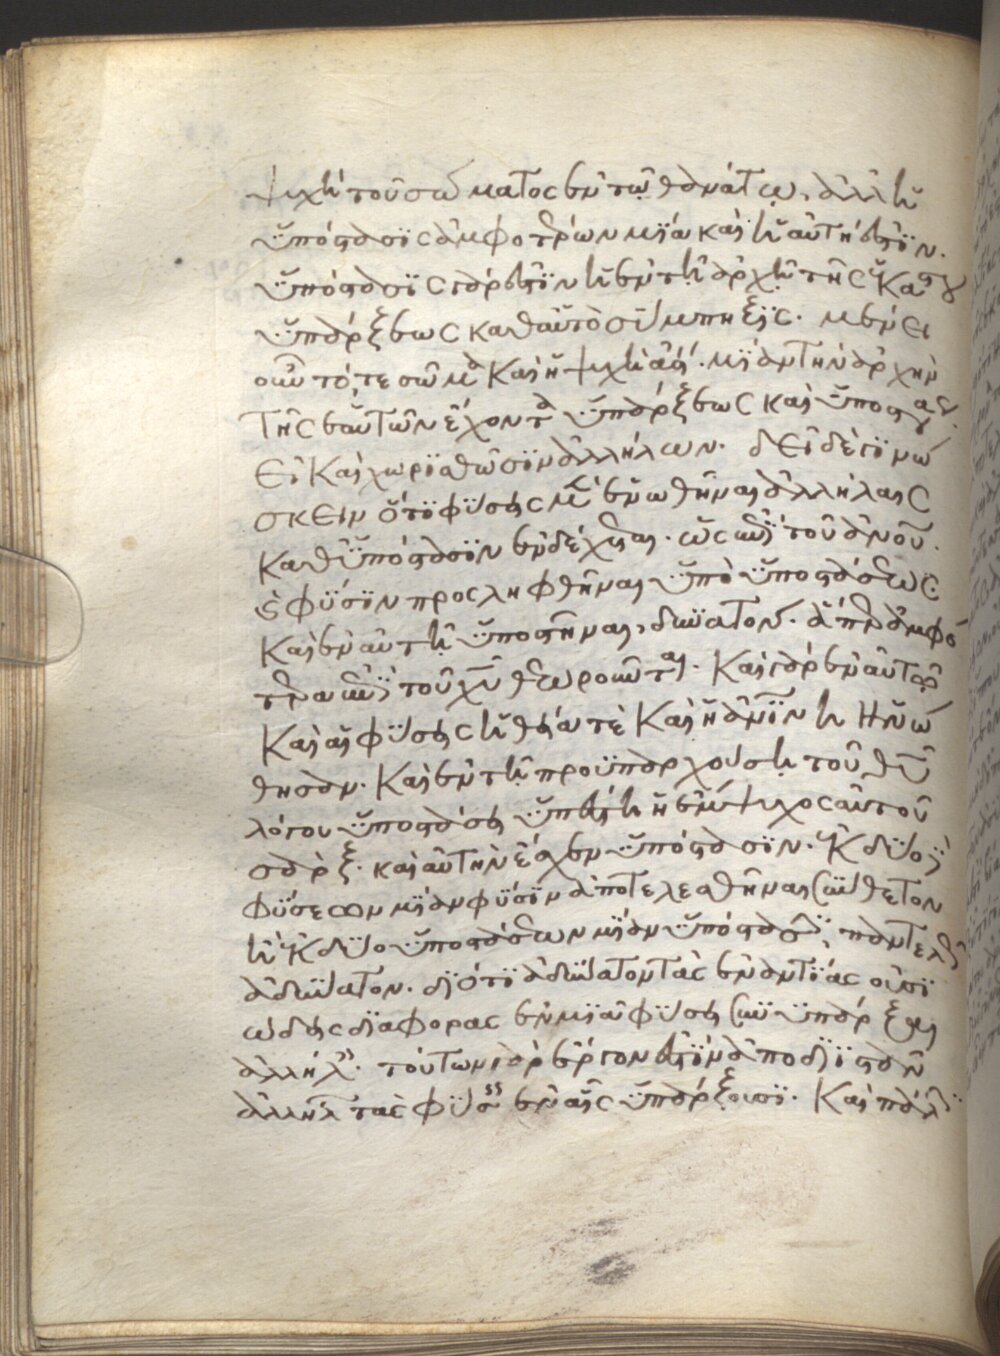 ψυχὴ τοῦ σώματος ἐν τῷ θανάτῳ, ἀλλ' ἡ
ὑπόστασις ἀμφοτέρων μία καὶ ἡ αὐτή ἐστιν.
ὑπόστασις γάρ ἐστιν ἡ ἐν τῇ ἀρχῇ τῆς ἑκάστου
ὑπάρξεως καθ' αὑτὸ σύμπηξις. μένει
οὖν τό, τε σῶμα καὶ ἡ ψυχὴ ἀεί. μίαν τὴν ἀρχὴν
τῆς ἑαυτῶν ἔχοντα ὑπάρξεως καὶ ὑποστάσεως.
εἰ καὶ χωρισθῶσιν ἀλλήλων. δεῖ δὲ γινώ
σκειν ὅτι φύσεις μὲν ἑνωθῆναι ἀλλήλαις
καθ' ὑπόστασιν ἐνδέχεται. ὡς ἐπὶ τοῦ ἀνου.
καὶ φύσιν προσληφθῆναι ὑπὸ ὑποστάσεως
καὶ ἐν αὐτῇ ὑποστῆναι, δυνατόν. ἅπερ ἀμφό
τερα ἐπὶ τοῦ χυ θεωροῦνται. καὶ γὰρ ἐν αὐτῷ
καὶ αἱ φύσεις ἥ θεία τὲ καὶ ἡ ἀνίνη ἡνώ
θησαν. καὶ ἐν τῇ προϋπαρχούσῃ τοῦ θυ
λόγου ὑποστάσει ὑπέστη ἡ ἔμψυχος αὐτοῦ
σάρξ. καὶ αὐτὴν ἔσχεν ὑπόστασιν. ἐκ δύο
φύσεων μίαν φύσιν ἀποτελεσθῆναι σύνθετον
ἢ ἐκ δύο ὑποστάσεων μίαν ὑπόστασιν, παντελῶς
ἀδύνατον. διότι ἀδύνατον τὰς ἐναντίας οὐσι
ώδεις διαφορὰς ἐν μιᾷ φύσει συνυπάρξαι
ἀλλήλαις. τούτων γὰρ ἔργον ἐστὶν ἀποδιιστᾶν
ἀλλήλων τὰς φύσεις ἐν αἷς ὑπάρξουσι. καὶ πάλιν